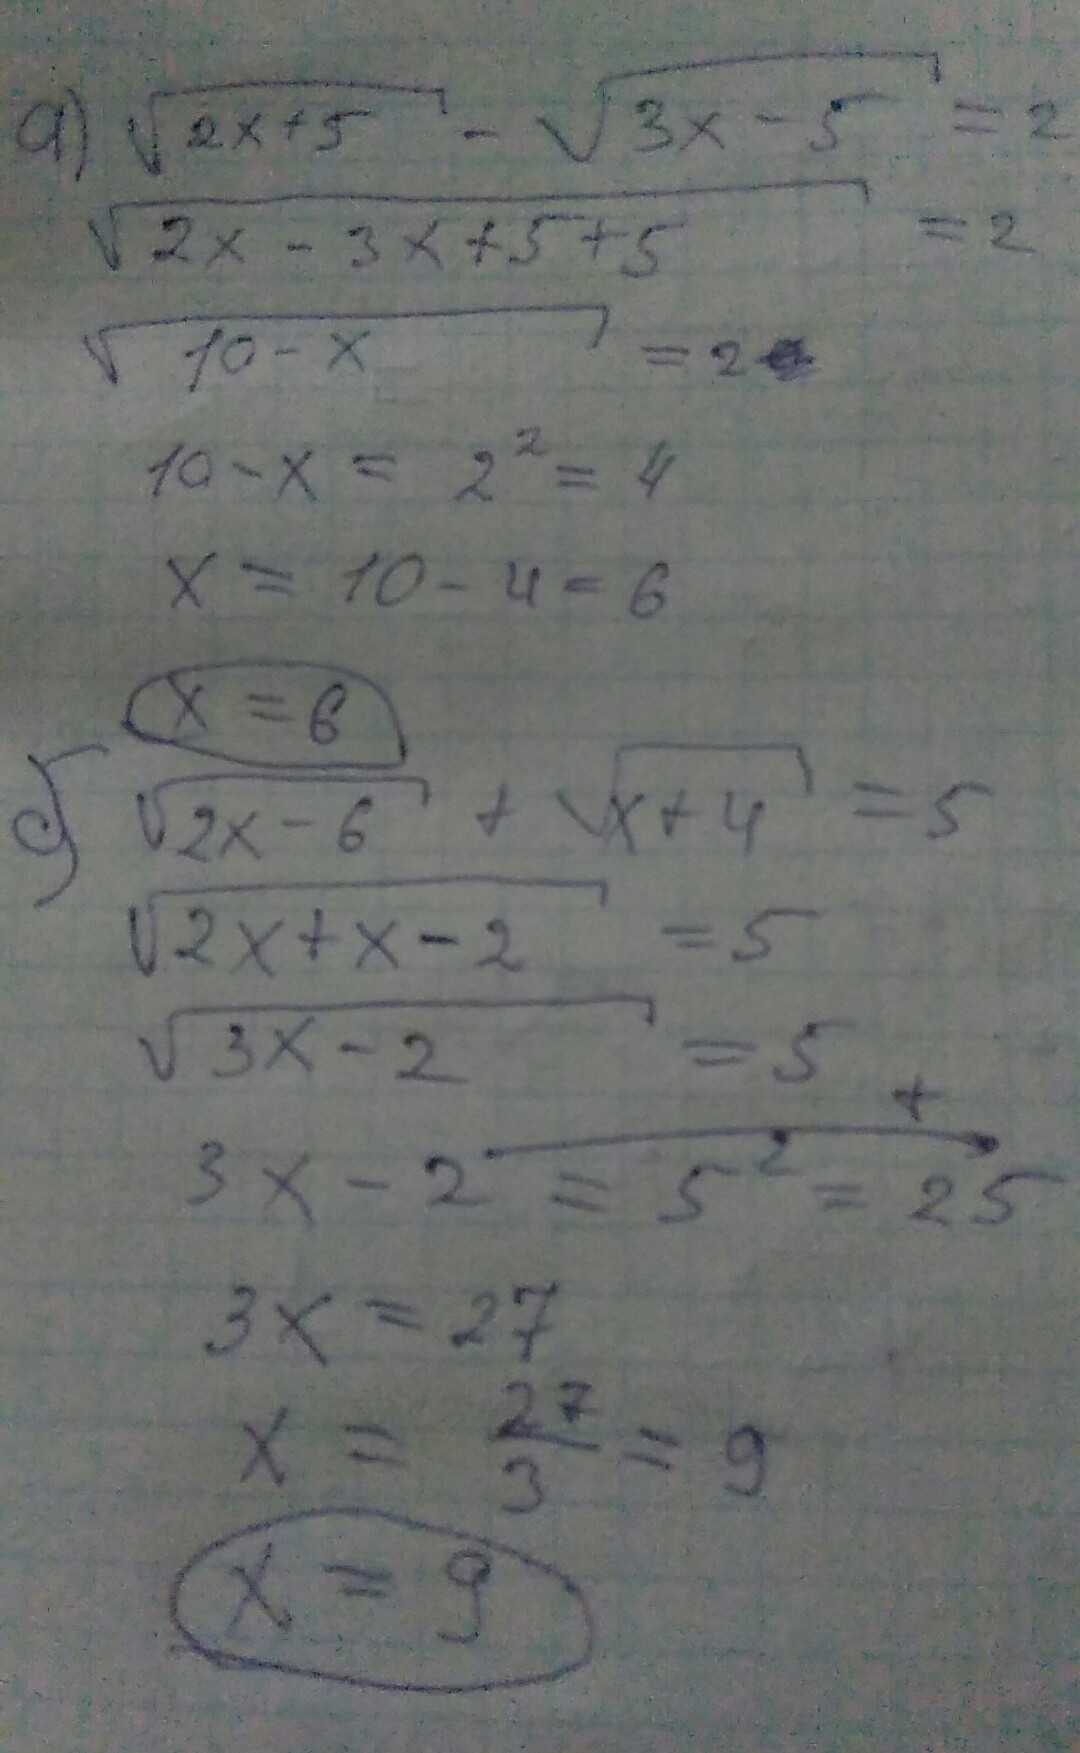 a) √(2x+5) - √(3x-5) = 2
√(2x-3x+5+5) = 2
√(10-x) = 2
10-x = 2² = 4
x = 10-4 = 6
x = 6
c) √(2x-6) + √(x+4) = 5
√(2x+x-2) = 5
√(3x-2) = 5
+
3x-2 = 5² = 25
3x = 27
x = 27/3 = 9
x = 9